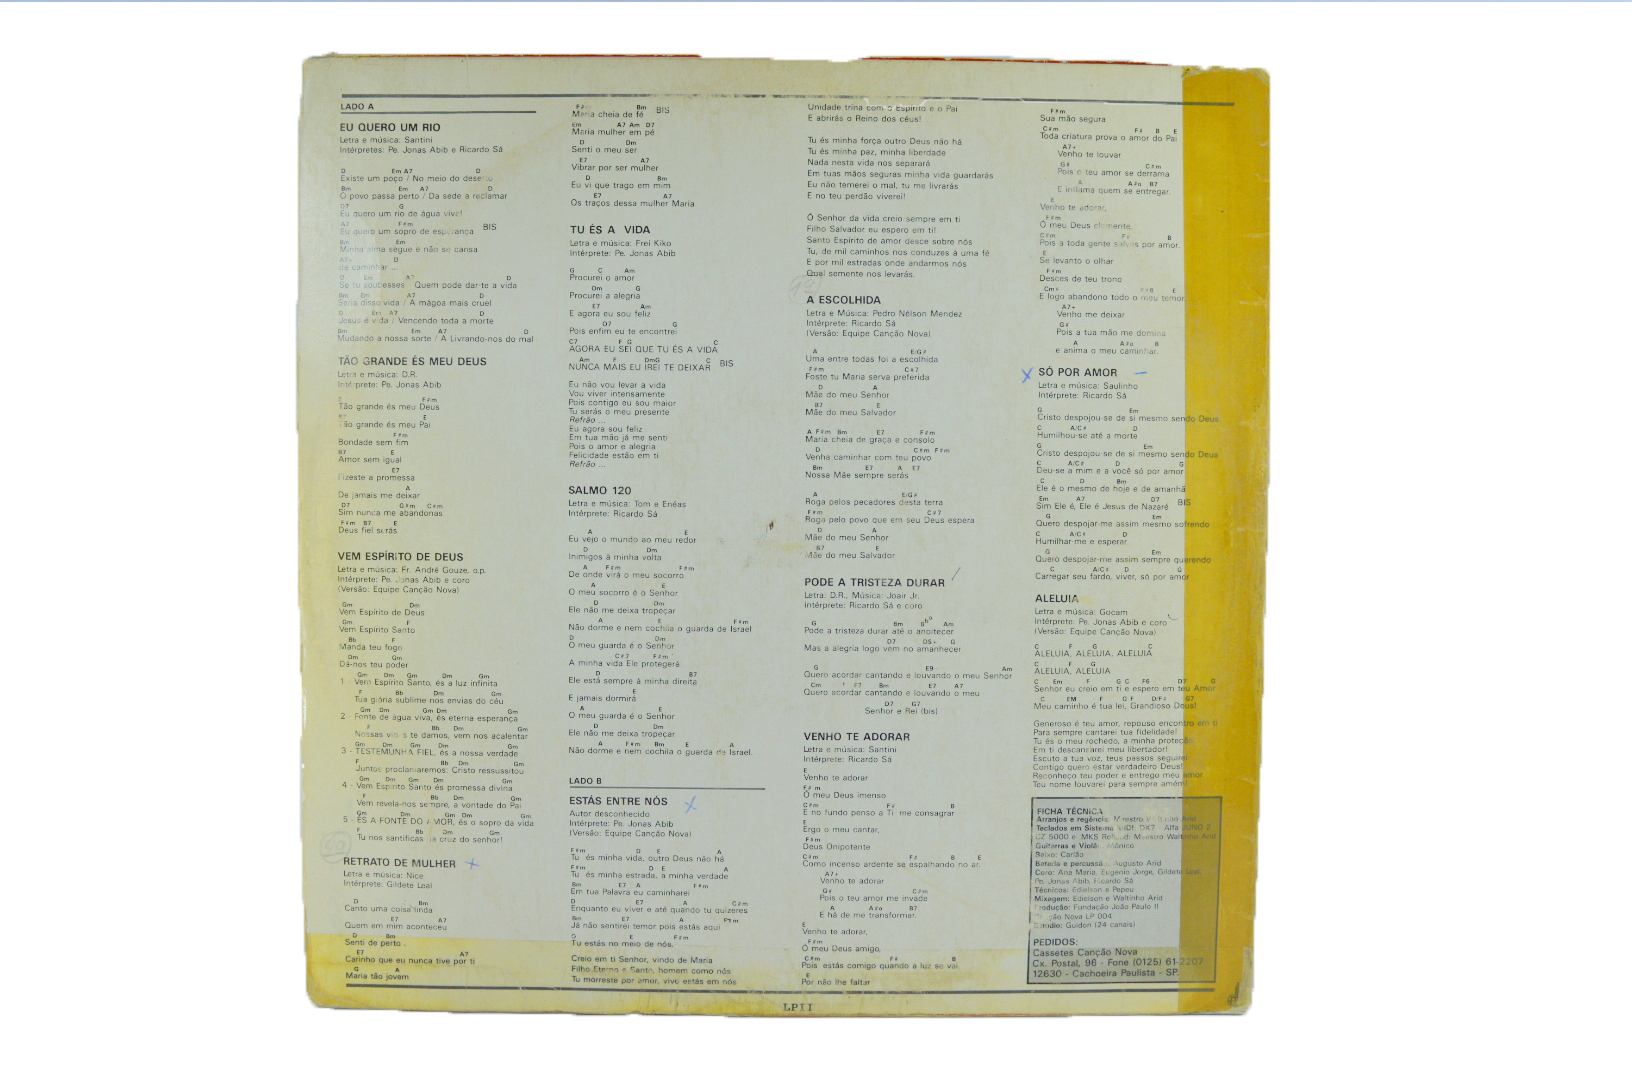 LADO A
EU QUERO UM RIO
Letra e música: Santini
Intérpretes: Pe. Jonas Abib e Ricardo Sá
D Em A7 D
Existe um poço / No meio do deserto
Bm Em A7 D
O povo passa perto / Da sede a reclamar
D7 G
Eu quero um rio de água viva!
A7 F#m
Eu quero um sopro de esperança BIS
Bm Em
Minha alma segue e não se cansa
A7+ D
de caminhar ...
D Em A7 D
Se tu soubesses Quem pode dar-te a vida
Bm Em A7 D
Saria disso vida / A mágoa mais cruel
D Em A7 D
Jesus é vida / Vencendo toda a morte
Bm Em A7 D
Mudando a nossa sorte / A Livrando-nos do mal
TÃO GRANDE ÉS MEU DEUS
Letra e música: D.R.
Intérprete: Pe. Jonas Abib
E F#m
Tão grande és meu Deus
B7 E
Tão grande és meu Pai
F#m
Bondade sem fim
B7 E
Amor sem igual
E7
Fizeste a promessa
A
De jamais me deixar
D7 G#m C#m
Sim nunca me abandonas
F#m B7 E
Deus fiel serás
VEM ESPÍRITO DE DEUS
Letra e música: Fr. André Gouze, o.p.
Intérpretes: Pe. Jonas Abib e coro
(Versão: Equipe Canção Nova)
Gm Dm
Vem Espírito de Deus
Gm F
Vem Espírito Santo
Bb F
Manda teu fogo
Dm Gm
Dá-nos teu poder
Gm Dm Gm Dm Gm
1 - Vem Espírito Santo, és a luz infinita
F Bb Dm Gm
Tua glória sublime nos envias do céu
Gm Dm Gm Dm Gm
2 - Fonte de água viva, és eterna esperança
F Bb Dm Gm
Nossas vidas te damos, vem nos acalentar
Gm Dm Gm Dm Gm
3 - TESTEMUNHA FIEL, és a nossa verdade
F Bb Dm Gm
Juntos proclamaremos: Cristo ressussitou
Gm Dm Gm Dm Gm
4 - Vem Espírito Santo és promessa divina
F Bb Dm Gm
Vem revela-nos sempre, a vontade do Pai
Gm Dm Gm Dm Gm
5 - ÉS A FONTE DO AMOR, és o sopro da vida
F Bb Dm Gm
Tu nos santificas na cruz do senhor!
RETRATO DE MULHER
Letra e música: Nice
Intérprete: Gildete Leal
D Bm
Canto uma coisa linda
E7 A7
Quem em mim aconteceu
D Bm
Senti de perto
E7 A7
Carinho que eu nunca tive por ti
G A
Maria tão jovem
F# Bm
Maria cheia de fé BIS
Em A7 Am D7
Maria mulher em pé
D Dm
Senti o meu ser
E7 A7
Vibrar por ser mulher
D Bm
Eu vi que trago em mim
E7 A7
Os traços dessa mulher Maria
TU ÉS A VIDA
Letra e música: Frei Kiko
Intérprete: Pe. Jonas Abib
G C Am
Procurei o amor
Dm G
Procurei a alegria
E7 Am
E agora eu sou feliz
D7 G
Pois enfim eu te encontrei
C7 F G C
AGORA EU SEI QUE TU ÉS A VIDA
Am F DmG C
NUNCA MAIS EU IREI TE DEIXAR BIS
Eu não vou levar a vida
Vou viver intensamente
Pois contigo eu sou maior
Tu serás o meu presente
Refrão ...
Eu agora sou feliz
Em tua mão já me senti
Pois o amor e alegria
Felicidade estão em ti
Refrão ...
SALMO 120
Letra e música: Tom e Enéas
Intérprete: Ricardo Sá
A E
Eu vejo o mundo ao meu redor
D Dm
Inimigos à minha volta
A F#m F#m
De onde virá o meu socorro
A E
O meu socorro é o Senhor
D Dm
Ele não me deixa tropeçar
A E F#m
Não dorme e nem cochila o guarda de Israel
D Dm
O meu guarda é o Senhor
C#7 F#m
A minha vida Ele protegerá
D B7
Ele está sempre à minha direita
E
E jamais dormirá
A E
O meu guarda é o Senhor
D Dm
Ele não me deixa tropeçar
A F#m Bm E A
Não dorme e nem cochila o guarda de Israel.
LADO B
ESTÁS ENTRE NÓS
Autor desconhecido
Intérprete: Pe. Jonas Abib
(Versão: Equipe Canção Nova)
F#m D E A
Tu és minha vida, outro Deus não há
F#m D E A
Tu és minha estrada, a minha verdade
Bm E7 A F#m
Em tua Palavra eu caminharei
D E7 A C#m
Enquanto eu viver e até quando tu quizeres
Bm E7 A F#m
Já não sentirei temor pois estás aqui
D E F#m
Tu estás no meio de nós.
Creio em ti Senhor, vindo de Maria
Filho Eterno e Santo, homem como nós
Tu morreste por amor, vivo estás em nós
Unidade trina com o Espírito e o Pai
E abrirás o Reino dos céus!
Tu és minha força outro Deus não há
Tu és minha paz, minha liberdade
Nada nesta vida nos separará
Em tuas mãos seguras minha vida guardarás
Eu não temerei o mal, tu me livrarás
E no teu perdão viverei!
Ó Senhor da vida creio sempre em ti
Filho Salvador eu espero em ti!
Santo Espírito de amor desce sobre nós
Tu, de mil caminhos nos conduzes à uma fé
E por mil estradas onde andarmos nós
Qual semente nos levarás.
A ESCOLHIDA
Letra e Música: Pedro Nélson Mendez
Intérprete: Ricardo Sá
(Versão: Equipe Canção Nova)
A E/G#
Uma entre todas foi a escolhida
F#m C#7
Foste tu Maria serva preferida
D A
Mãe do meu Senhor
B7 E
Mãe do meu Salvador
A F#m Bm E7 F#m
Maria cheia de graça e consolo
D C#m F#m
Venha caminhar com teu povo
Bm E7 A E7
Nossa Mãe sempre serás
A E/G#
Roga pelos pecadores desta terra
F#m C#7
Roga pelo povo que em seu Deus espera
D A
Mãe do meu Senhor
B7 E
Mãe do meu Salvador
PODE A TRISTEZA DURAR
Letra: D.R., Música: Joair Jr.
Intérprete: Ricardo Sá e coro
G Bm Bb° Am
Pode a tristeza durar até o anoitecer
D7 D5+ G
Mas a alegria logo vem no amanhecer
G E9 Am
Quero acordar cantando e louvando o meu Senhor
Cm F7 Bm E7 A7
Quero acordar cantando e louvando o meu
D7 G7
Senhor e Rei (bis)
VENHO TE ADORAR
Letra e música: Santini
Intérprete: Ricardo Sá
E
Venho te adorar
F# m
Ó meu Deus imenso
C#m F# B
E no fundo penso a Ti me consagrar
E
Ergo o meu cantar,
F#m
Deus Onipotente
C#m F# B E
Como incenso ardente se espalhando no ar.
A7+
Venho te adorar
G# C#m
Pois o teu amor me invade
A A#o B7
E há de me transformar.
E
Venho te adorar,
F#m
Ó meu Deus amigo,
C#m F# B
Pois estás comigo quando a luz se vai.
E
Por não lhe faltar
F#m
Sua mão segura
C#m F# B E
Toda criatura prova o amor do Pai
A7+
Venho te louvar
G# C#m
Pois o teu amor se derrama
A A#o B7
E inflama quem se entregar.
E
Venho te adorar,
F#m
Ó meu Deus clemente,
C#m F# B
Pois a toda gente salvas por amor.
E
Se levanto o olhar
F#m
Desces de teu trono
Cm# F#B E
E logo abandono todo o meu temor.
A7+
Venho me deixar
G#
Pois a tua mão me domina
A A#o B
e anima o meu caminhar.
SÓ POR AMOR
Letra e música: Saulinho
Intérprete: Ricardo Sá
G Em
Cristo despojou-se de si mesmo sendo Deus
C A/C# D
Humilhou-se até a morte
G Em
Cristo despojou-se de si mesmo sendo Deus
C A/C# D G
Deu-se a mim e a você só por amor
C D Bm
Ele é o mesmo de hoje e de amanhã
Em A7 D7 BIS
Sim Ele é, Ele é Jesus de Nazaré
G Em
Quero despojar-me assim mesmo sofrendo
C A/C# D
Humilhar-me e esperar
G Em
Quero despojar-me assim sempre querendo
C A/C# D G
Carregar seu fardo, viver, só por amor
ALELUIA
Letra e música: Gocam
Intérprete: Pe. Jonas Abib e coro
(Versão: Equipe Canção Nova)
C F G C
ALELUIA, ALELUIA, ALELUIA
C F G
ALELUIA, ALELUIA
C Em F G C F6 D7 G
Senhor eu creio em ti e espero em teu Amor
C EM F G F D/F# B7
Meu caminho é tua lei, Grandioso Deus!
Generoso é teu amor, repouso encontro em ti
Para sempre cantarei tua fidelidade!
Tu és o meu rochedo, a minha proteção
Em ti descanzarei meu libertador!
Escuto a tua voz, teus passos seguirei
Contigo quero estar verdadeiro Deus!
Reconheço teu poder e entrego meu amor
Teu nome louvarei para sempre amém!
FICHA TÉCNICA
Arranjos e regência: Maestro Waltinho Arid
Teclados em Sistema MIDI: DX7 - Alfa JUNO 2
CZ 5000 e MKS Roland: Maestro Waltinho Arid
Guitarras e Violão: Mônico
Baixo: Carlão
Bateria e percussão: Augusto Arid
Coro: Ana Maria, Eugenio Jorge, Gildete Leal,
Pe. Jonas Abib, Ricardo Sá
Técnicos: Edielson e Pepeu
Mixagem: Edielson e Waltinho Arid
Produção: Fundação João Paulo II
Canção Nova LP 004
Estúdio: Guidon (24 canais)
PEDIDOS:
Cassetes Canção Nova
Cx. Postal, 96 - Fone (0125) 61-2207
12630 - Cachoeira Paulista - SP.
LPII